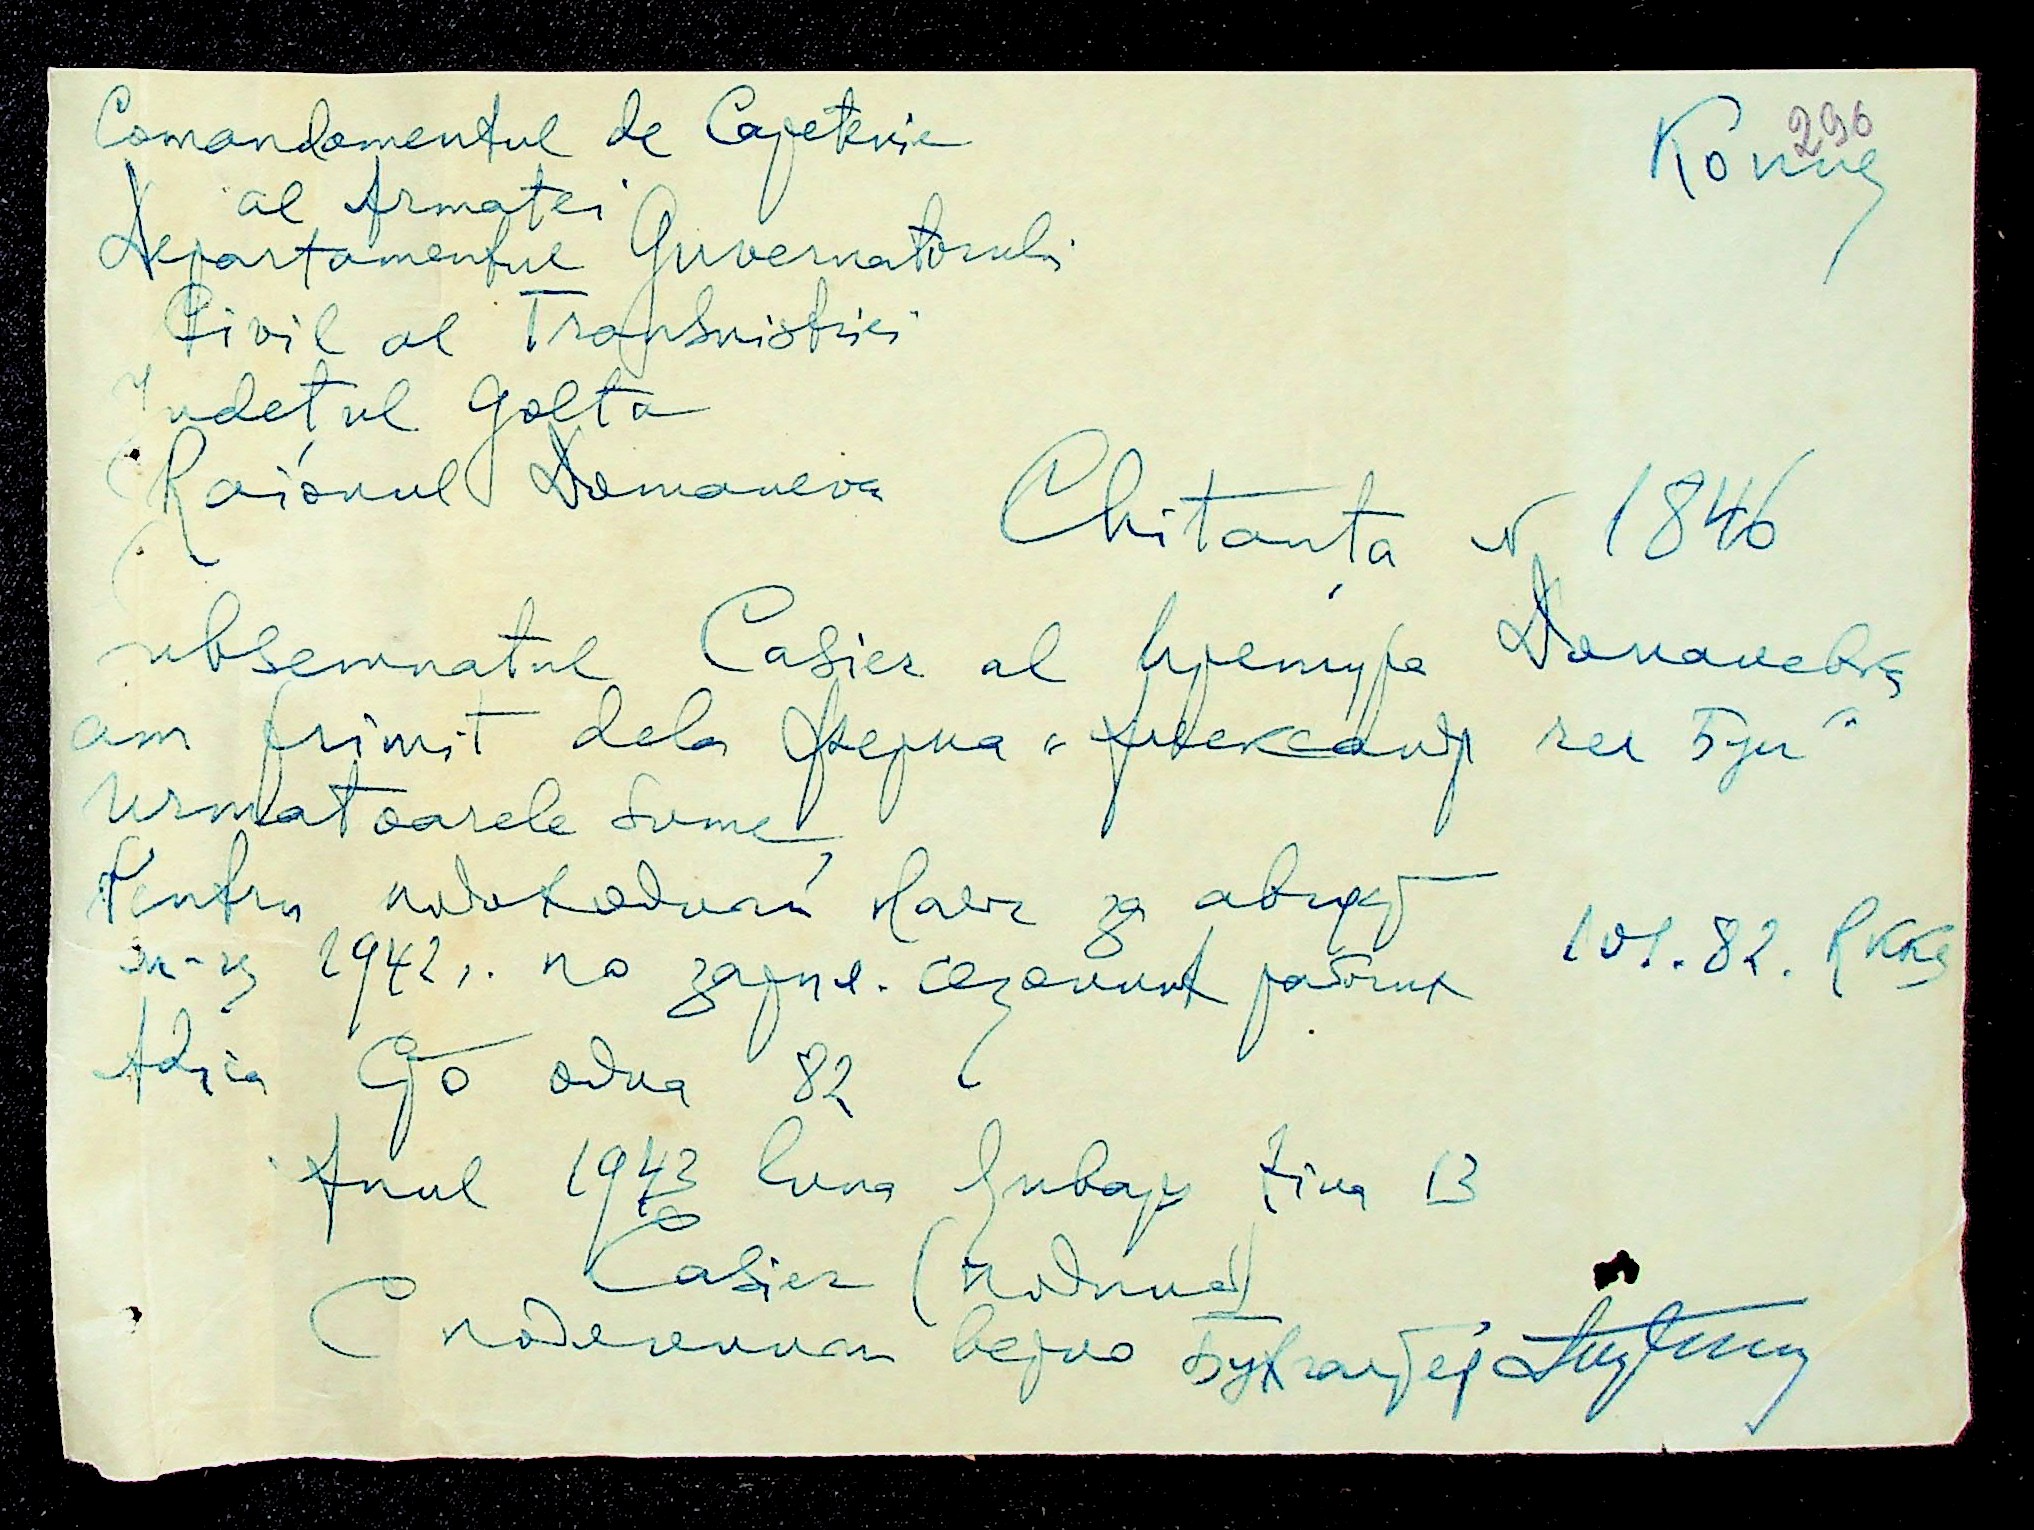 Comandamentul de Capetenie
296
Копия
al Armatei
Departamentul Guvernatorului
Civil al Transnistriei
Judetul Golta
Raionul Domaneva
Chitanța N 1846
subsemnatul Casier al претура Доманевка
am primit dela ферма "Александр чел Бун"
urmatoarele sume
Pentru подоходный налог за август
м-ц 1942 г. по зарпл. сезонных рабочих 101.82. RKKS
Adica Сто одна 82
Anul 1943 luna Январь Ziua 13
Casier (подпись)
С подлинным верно Бухгалтер